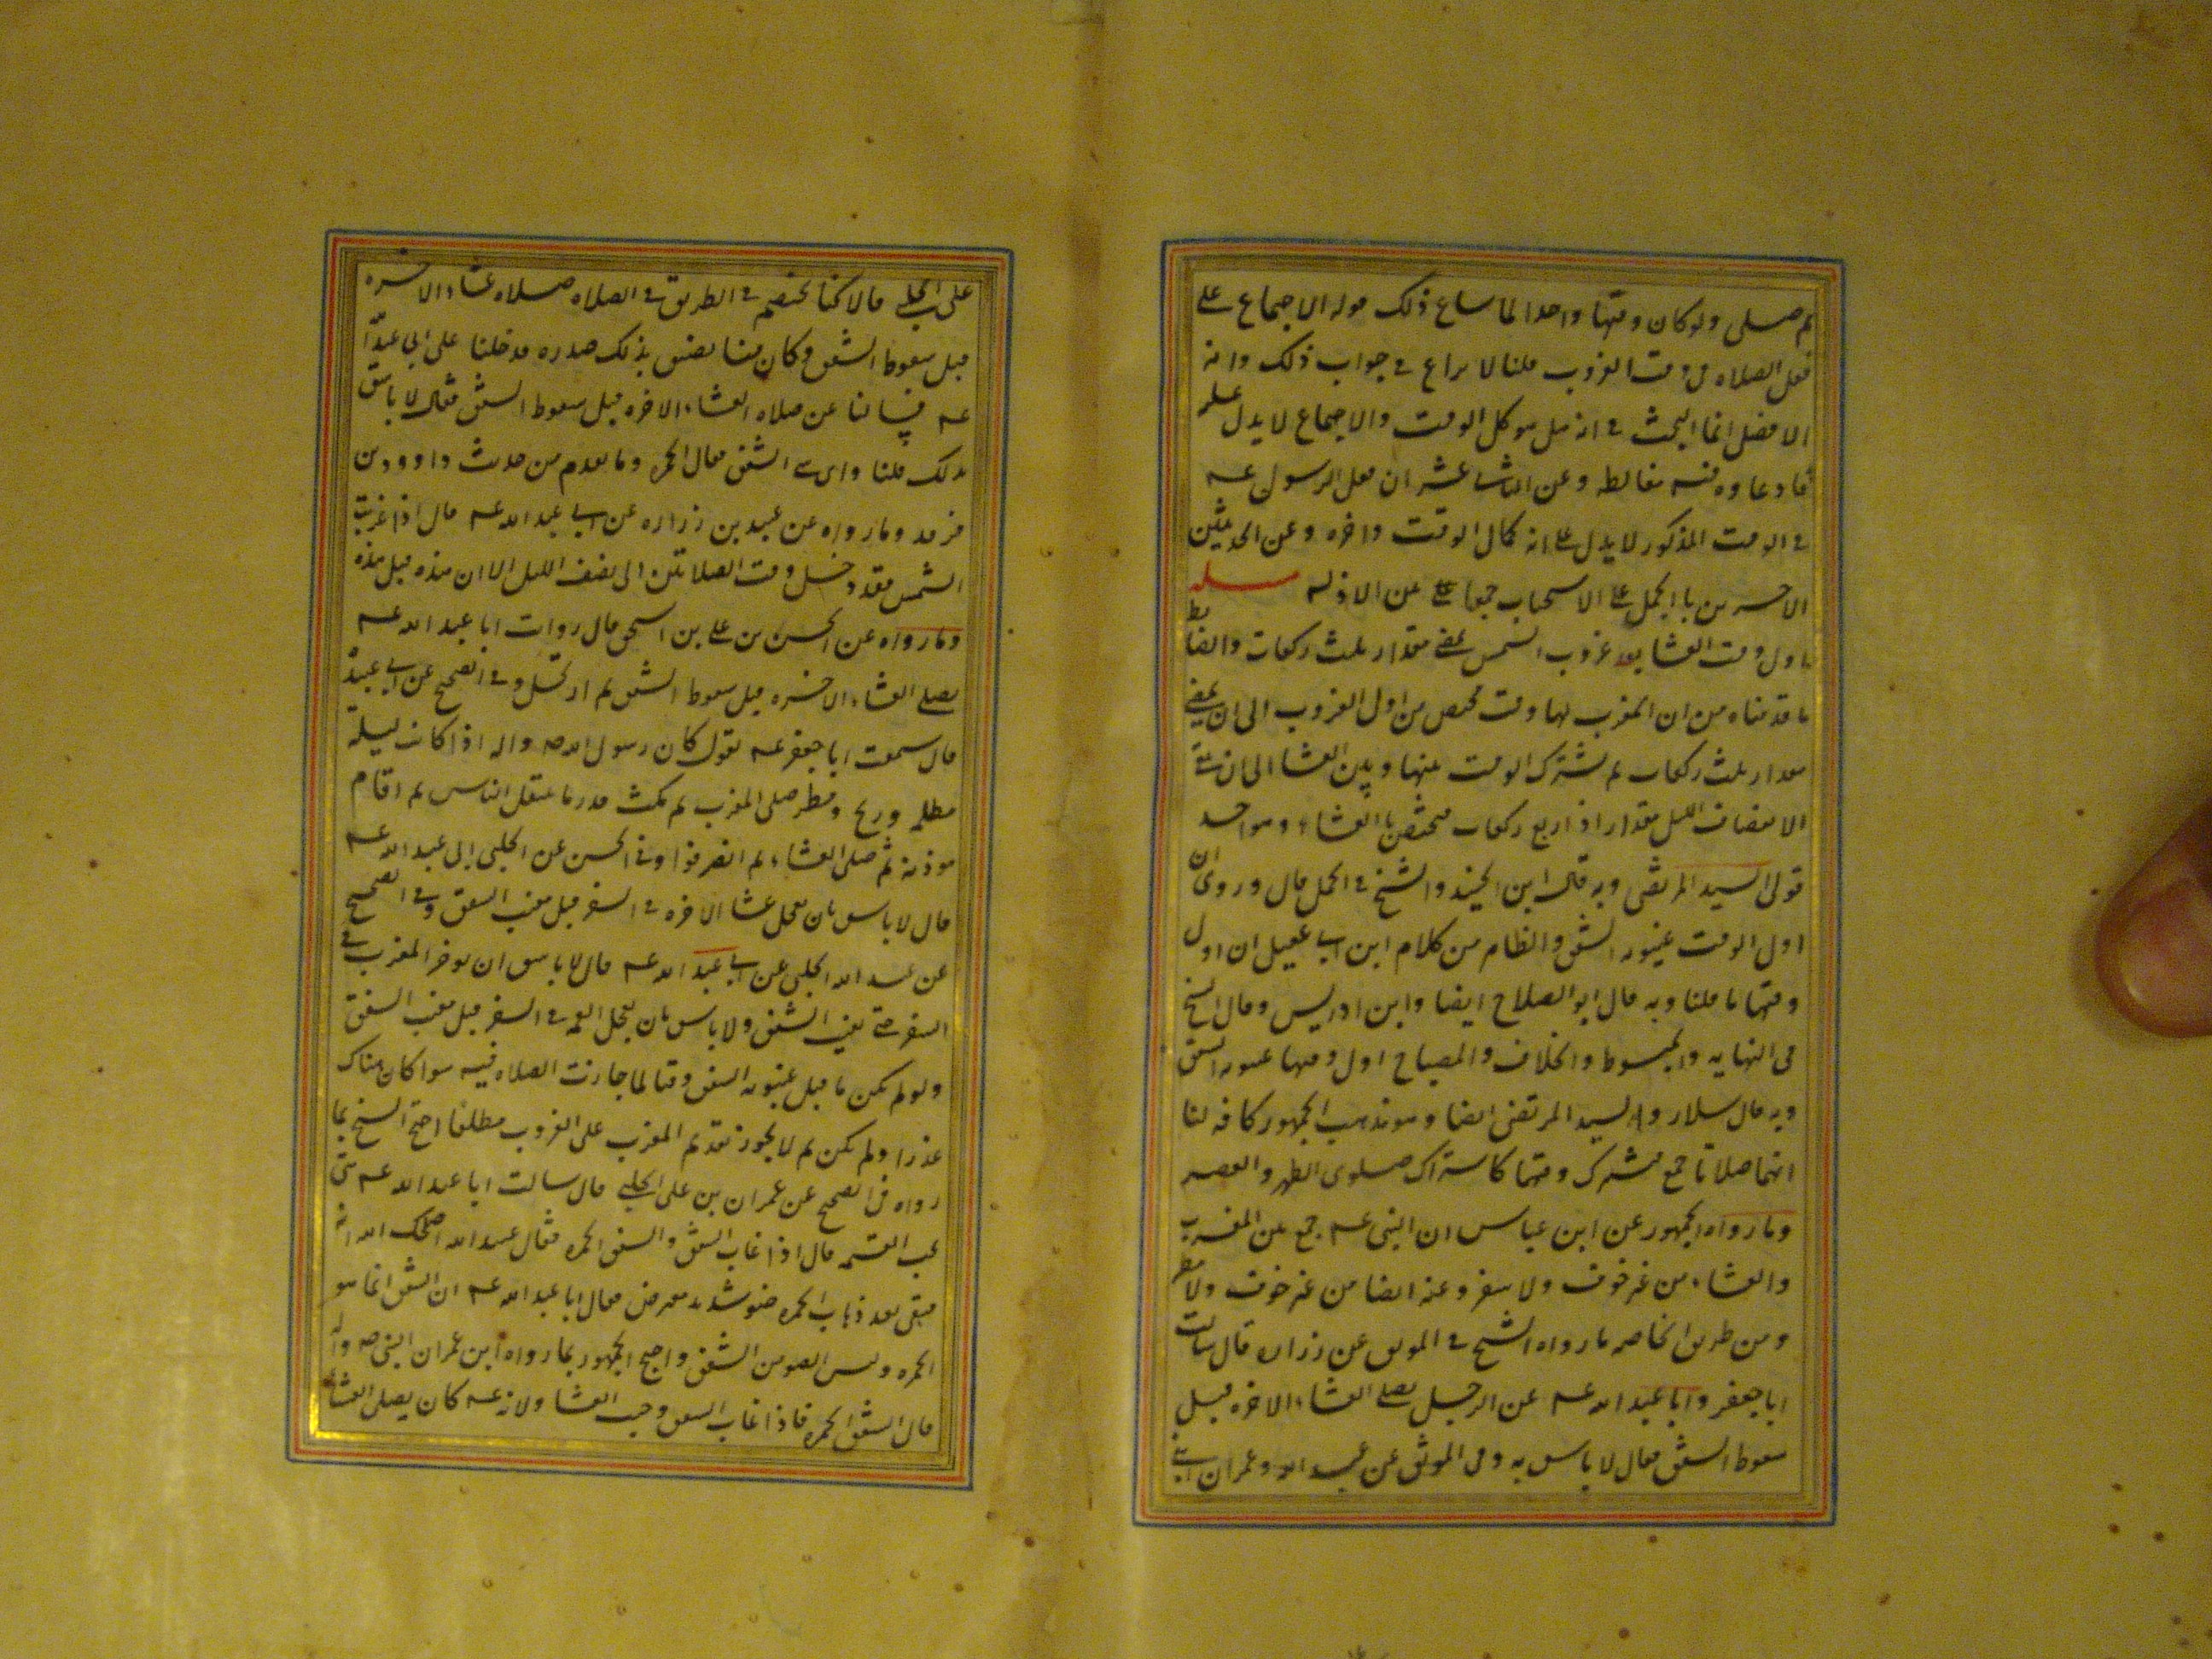 ثم صلى ولو كان وقتها واحدا لما ساغ ذلك قوله الاجماع على
فعل الصلاه فى وقت الغروب قلنا لا نزاع فى جواب ذلك وانه
الافضل انما البحث فى انه هل هو كل الوقت والاجماع لا يدل عليه
فادعاوه فيه مغالطه وعن الثالث عشر ان فعل الرسول عـه
فى الوقت المذكور لا يدل على انه كمال الوقت واخره وعن الحديثين
الاخيرين بالحمل على الاستحباب جمعا بين الادله مسئله
اول وقت العشا بعد غروب الشمس بمضى مقدار ثلث ركعات والضابط
ما قدمناه من ان المغرب لها وقت مختص من اول الغروب الى ان يمضى
مقدار ثلث ركعات ثم يشترك الوقت بينها وبين العشا الى ان يبقى
لانتصاف الليل مقدار اداء اربع ركعات فيختص بالعشاء وهو احد
قولى السيد المرتضى وبه قال ابن الجنيد والشيخ فى الجمل قال وروى ان
اول الوقت غيبوبه الشفق والظاهر من كلام ابن ابى عقيل ان اول
وقتها ما قلنا وبه قال ابو الصلاح ايضا وابن ادريس وقال الشيخ
فى النهايه والمبسوط والخلاف والمصباح اول وقتها غيبوبه الشفق
وبه قال سلار والسيد المرتضى ايضا وهو مذهب الجمهور كافه لنا
انهما صلاتا جمع فيشترك وقتهما كاشتراك صلوتى الظهر والعصر
وما رواه الجمهور عن ابن عباس ان النبى عـه جمع بين المغرب
والعشاء من غير خوف ولا سفر وعنه ايضا من غير خوف ولا مطر
ومن طريق الخاصه ما رواه الشيخ فى الموثق عن زراره قال سالت
ابا جعفر وابا عبد الله عـه عن الرجل يصلى العشاء الاخره قبل
سقوط الشفق فقال لا باس به وفى الموثق عن عبيد الله وعمران ابنى
على الحلبى قالا كنا نختصم فى الطريق فى الصلاه صلاه عشاء الاخره
قبل سقوط الشفق وكان منا يضيق بذلك صدره فدخلنا على ابى عبد الله
عـه فسالنا عن صلاه العشاء الاخره قبل سقوط الشفق فقال لا باس
بذلك قلنا واى شى الشفق فقال الحمره وما تقدم من حديث داوود بن
فرقد وما رواه عن عبيد بن زراره عن ابى عبد الله عـه قال اذا غربت
الشمس فقد دخل وقت الصلاتين الى نصف الليل الا ان هذه قبل هذه
وما رواه عن الحسن بن على بن اسحق قال روات ابا عبد الله عـه
يصلى العشاء الاخره قبل سقوط الشفق ثم ارتحل وفى الصحيح عن ابى عبيده
قال سمعت ابا جعفر عـه يقول كان رسول الله صه واله اذا كانت ليله
مظلمه وريح ومطر صلى المغرب ثم مكث قدر ما يتنفل الناس ثم اقام
موذنه ثم صلى العشاء ثم انصرفوا وفى الحسن عن الحلبى ابى عبد الله عـه
قال لا باس بان تعجل عشا الاخره فى السفر قبل مغيب الشفق وفى الصحيح
عن عبيد الله الحلبى عن ابى عبد الله عـه قال لا باس ان توخر المغرب فى
السفر حتى يغيب الشفق ولا باس بان تعجل العتمه فى السفر قبل مغيب الشفق
ولو لم يكن ما قبل غيبوبه الشفق وقتا لما جازت الصلاه فيه سوا كان هناك
عذرا ولم يكن ثم لا يجوز تقديم المغرب على الغروب مطلقا احتج الشيخ بما
رواه فى الصحيح عن عمران بن على الحلبى قال سالت ابا عبد الله عـه متى
تجب العتمه قال اذا غاب الشفق والشفق الحمره فقال عبيد الله اصلحك الله انه
يبقى بعد ذهاب الحمره ضو شديد معرض فقال ابا عبد الله عـه ان الشفق انما هو
الحمره وليس الضو من الشفق واحتج الجمهور بما رواه ابن عمر ان النبى صه واله
قال الشفق الحمره فاذا غاب الشفق وجب العشا ولانه عـه كان يصلى العشا